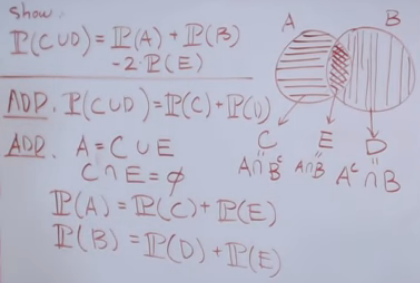 Show:
ℙ(C∪D) = ℙ(A) + ℙ(B)
-2·ℙ(E)
ADD. ℙ(C∪D) = ℙ(C) + ℙ(D)
ADD. A = C ∪ E
C ∩ E = ∅
ℙ(A) = ℙ(C) + ℙ(E)
ℙ(B) = ℙ(D) + ℙ(E)
A B
C E D
= = =
A∩B^c A∩B A^c ∩ B